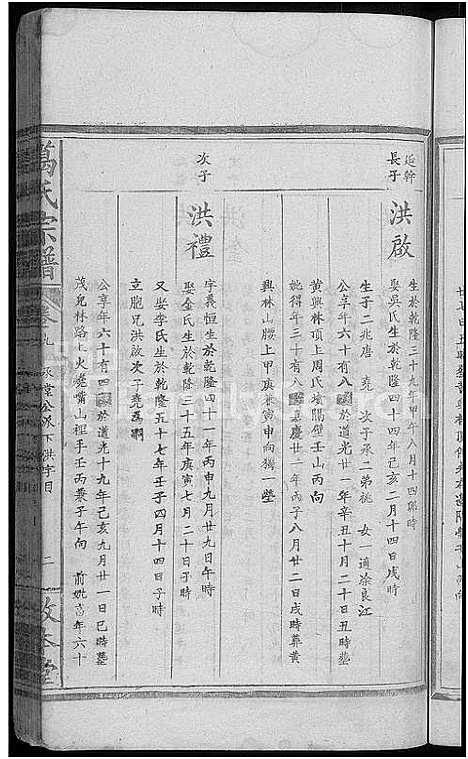 延幹
長子
洪啟
生於乾隆三十九年甲午八月十四卯時
娶吳氏生於乾隆四十四年己亥二月十四日戌時
生子二兆唐 堯 次子承二弟祧 女一適涂良江
公享年六十有八 於道光廿一年辛丑十月二十日丑時塟
黃興林頂上周氏墳隔壁壬山丙向
妣得年三十有八 嘉慶廿一年內子八月廿二日戌時葬黄
興林山腰上甲庚兼寅申向獨一塋
次子
洪禮
字義恒生於乾隆四十一年丙申九月廿九日午時
娶金氏生於乾隆三十五年庚寅七月二十日子時
又娶李氏生於乾隆五十七年壬子四月十四日子時
立胞兄洪啟次子堯爲嗣
公享年六十有四 於道光十九年己亥九月廿一日巳時塟
茂兒林路上火堯嘴山裡手壬丙兼子午向 前妣享年六十
萬氏宗譜
卷九 承堂公派下洪字目
二
敦本堂